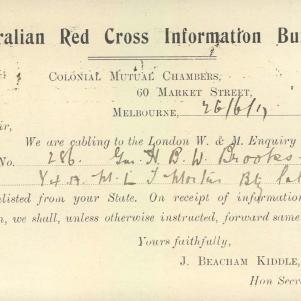 ralian Red Cross Information Bu
Colonial Mutual Chambers,
60 Market Street,
Melbourne, 26/6/17
ir,
We are cabling to the London W. & M. Enquiry
No. 286. Gnr. H. B. W. Brooks
M. L T Mortar Bty
nlisted from your State. On receipt of information
n, we shall, unless otherwise instructed, forward same
Yours faithfully,
J. Beacham Kiddle,
Hon Secr